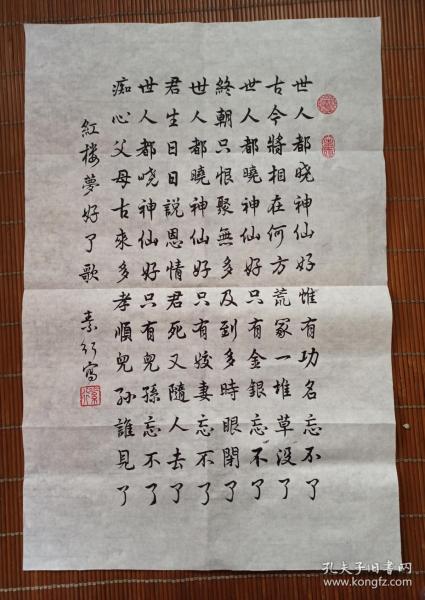 世人都晓神仙好惟有功名忘不了
古今將相在何方荒冢一堆草没了
世人都曉神仙好只有金銀忘不了
終朝只恨聚無多及到多時眼閉了
世人都曉神仙好只有姣妻忘不了
君生日日説恩情君死又隨人去了
世人都哓神仙好只有兒孫忘不了
痴心父母古來多孝順兒孫誰見了
紅楼夢好了歌 素行寫
孔夫子旧书网
www.kongfz.com